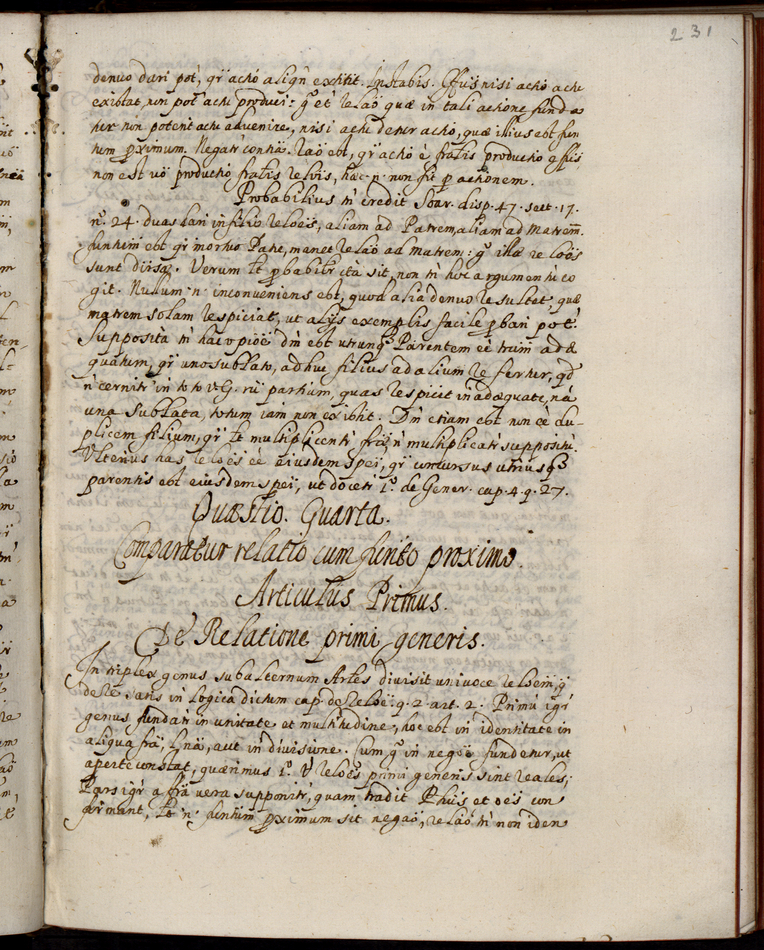 231
denuo dari pot', qr̃ actio aliqñ extitit. Instabis. Effus nisi actio actu
existat, non pot' actu produci: gͦ et' relaõ quæ in tali actione funda
tur non poterit actu advenire, nisi actu detur actio, quæ illius est fun
tum pximum. Negatr' contiã. Raõ est, qr̃ actio è fratis productio effus
non est uõ productio fratis relvis, hæc n' non fit p actionem.
Probabilius tñ credit Soar. disp. 47. sect. 17.
nͦ. 24. duas dari in filio reloẽs, aliam ad Patrem, aliam ad Matrem.
funtum est qr̃ mortuo Patre, manet relaõ ad matrem: gͦ illæ reloẽs
sunt diversæ. Verum lt̃ pbabilr̃ ità sit, non tñ hoc argumentũ co
git. Nullum n' inconveniens est, quod alia denuo resultet, quæ
matrem solam respiciat, ut alijs exemplis facile pbari pot'.
Supposità tñ hac opiõe dm̃ est utrunqꝫ Parentem eẽ trum adæ
quatum, qr̃ uno sublato, adhuc filius ad alium refertur, qd̃
ñ cernitr' in toto v. G. rũ partium, quas respicit inadæquate, nã
una sublata, totum iam non existit. Dm̃ etiam est non eẽ du-
plicem filium, qr̃ lt̃ multiplicentr' fræ ñ multiplicatr' suppositũ.
Ulterius has reloẽs eẽ eiusdem spei, qr̃ concursus utriusqꝫ
parentis est eiusdem spei, ut docetr' 1ͦ. de Gener. cap. 4. q. 27.
Quæstio. Quarta.
Comparatur relatio cum funto proximo.
Articulus Primus.
De Relatione primi generis.
In triplex genus subalternum Artles divisit univoce reloem, q̃
de re satis in Logica dictum cap. de reloẽ q. 2 art. 2. Primũ igr'
genus fundatr' in unitate et multitudine, hoc est in identitate in
aliqua frã, l. nã, aut in divisione. Cum gͦ in negoẽ fundetur, ut
aperte constat, quærimus 1ͦ. V̄ reloẽs primi generis sint reales;
Pars igr' affrã vera supponitr', quam tradit Phũs et oẽs con
firmant, lt̃ n' funtum pximum sit negaõ, relaõ tñ non iden